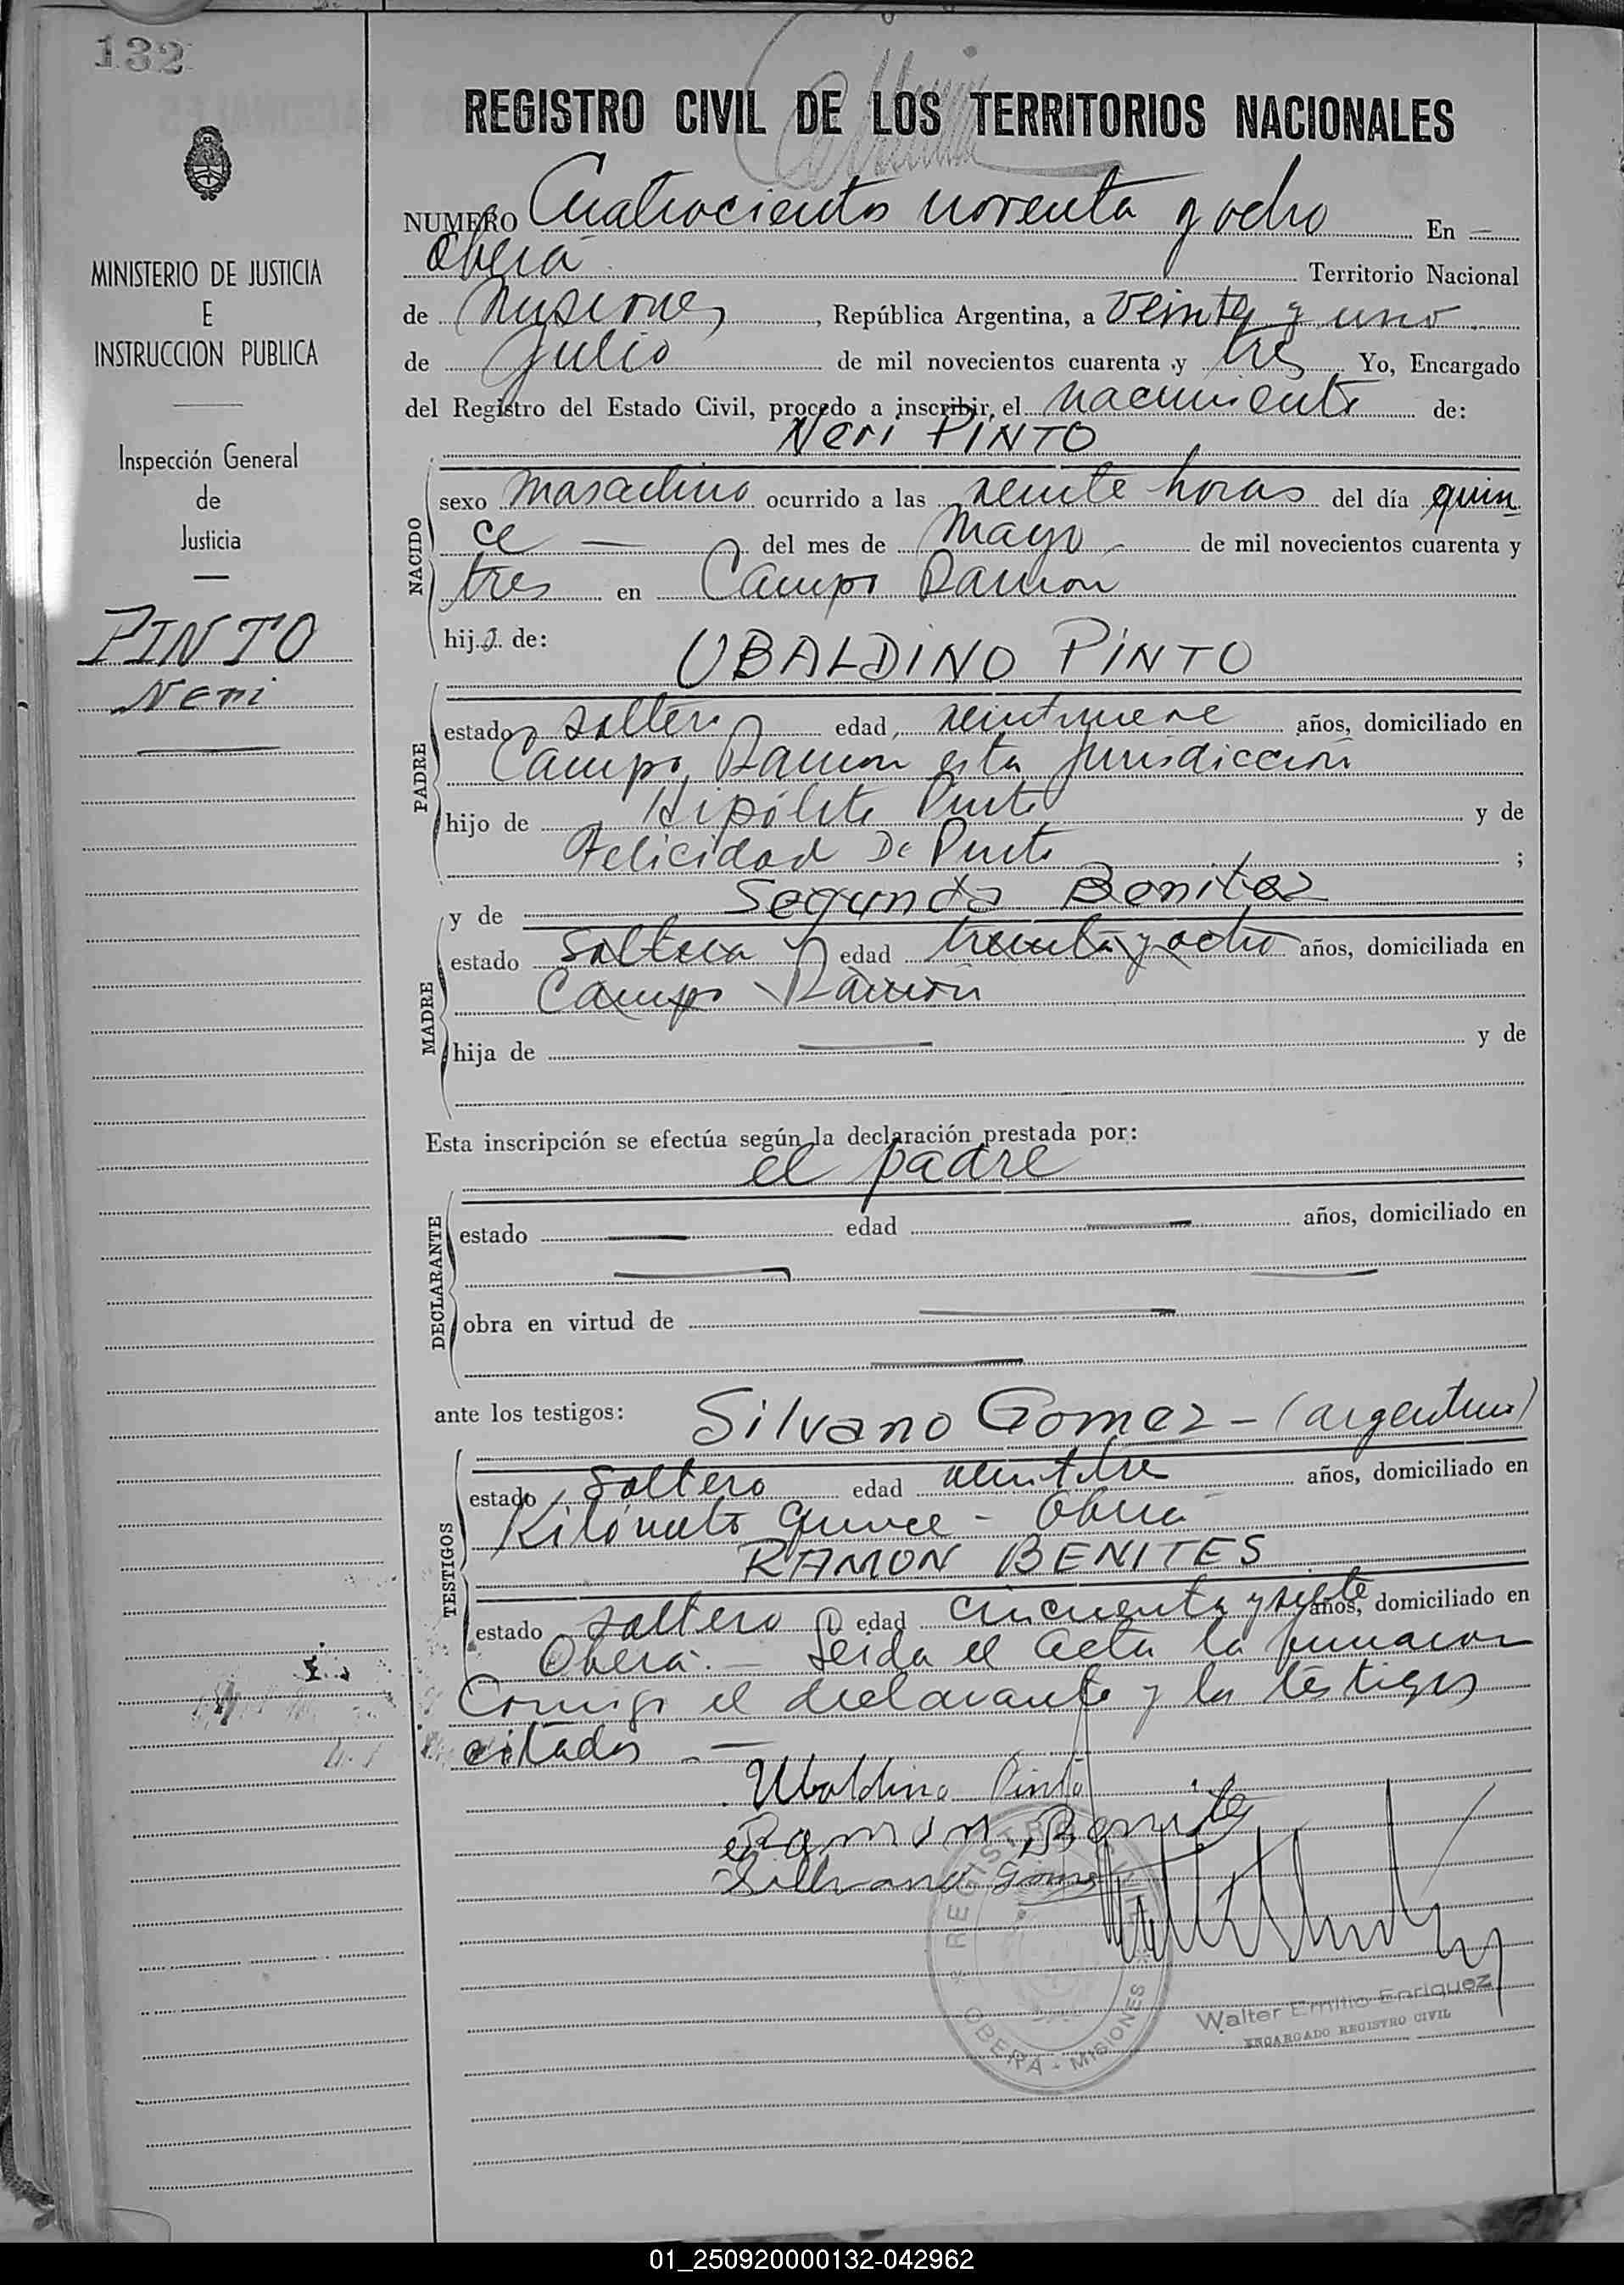 132
REGISTRO CIVIL DE LOS TERRITORIOS NACIONALES
MINISTERIO DE JUSTICIA
E
INSTRUCCION PUBLICA
Inspección General
de
Justicia
PINTO
Neri
NUMERO Cuatrocientos noventa y ocho En
Oberá Territorio Nacional
de Misiones, República Argentina, a veinte y uno
de Julio de mil novecientos cuarenta y tres Yo, Encargado
del Registro del Estado Civil, procedo a inscribir, el nacimiento de:
Neri PINTO
NACIDO
sexo masculino ocurrido a las veinte horas del día quin
ce — del mes de Mayo de mil novecientos cuarenta y
tres en Campo Ramon
hijo de: UBALDINO PINTO
PADRE
estado soltero edad, veintinueve años, domiciliado en
Campo Ramon esta jurisdiccion
hijo de Hipólito Pinto y de
Felicidad De Pinto ;
y de Segunda Benitez
MADRE
estado Soltera edad treinta y ocho años, domiciliada en
Campo Ramón
hija de — y de
Esta inscripción se efectúa según la declaración prestada por:
el padre
DECLARANTE
estado — edad — años, domiciliado en
obra en virtud de —
ante los testigos: Silvano Gomez - (argentino)
TESTIGOS
estado Soltero edad años, domiciliado en
Kilómetro quince - Oberá
RAMON BENITES
estado soltero edad cincuenta y siete años, domiciliado en
Oberá. - Leida el acta la firmaron
Conmigo el declarante y los testigos
citados . —
Ubaldino Pinto
Ramon Benite
Silbano Gomez
REGISTRO CIVIL
OBERA - MISIONES
Walter Emilio Enriquez
ENCARGADO REGISTRO CIVIL
01_250920000132-042962